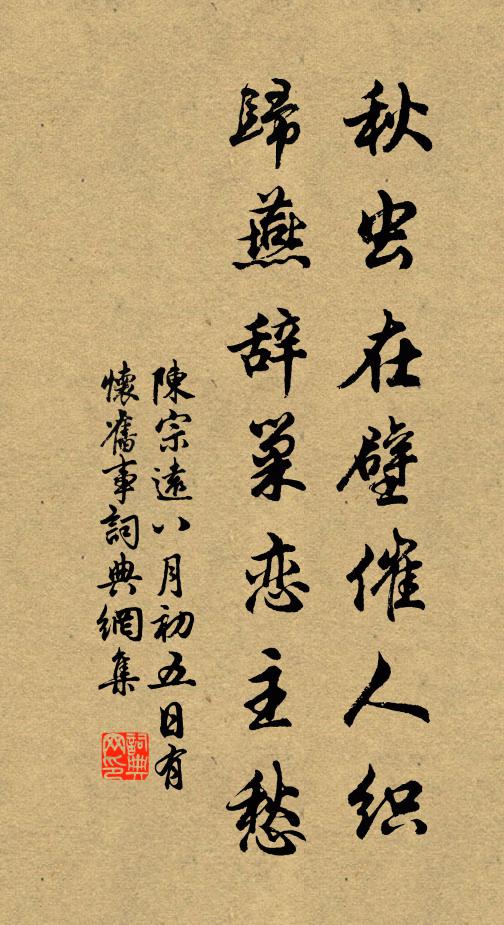 秋虫在壁催人织
歸燕辞巢恋主愁
陳宗遠八月初五日有
懷舊事詞典網集
詞典
网印